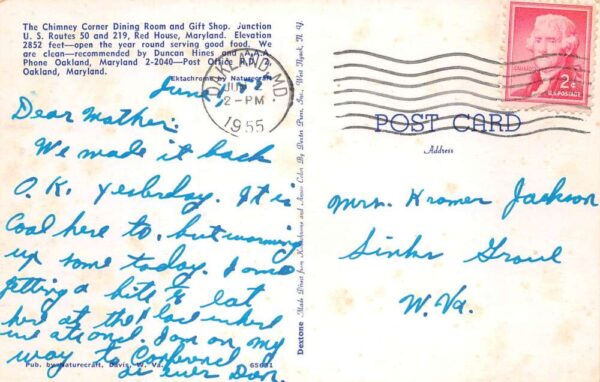 The Chimney Corner Dining Room and Gift Shop. Junction
U. S. Routes 50 and 219, Red House, Maryland. Elevation
2852 feet—open the year round serving good food. We
are clean—recommended by Duncan Hines and A.A.A.
Phone Oakland, Maryland 2-2040—Post Office R.D. 2,
Oakland, Maryland.
Ektachrome by Naturecraft
June,
Dear Mother:
We made it back
O.K. yesterday. It is
Cool here to, but warming
up some today. I am
getting a bite to eat
here at the place where
we ate once. I am on my
way to
Dan.
Pub. by Naturecraft, Davis, W. Va.
65631
Dextone
Made Direct from Kodachrome and Ansco Color By Dexter Press, Inc., West Nyack, N. Y.
OAKLAND, MD.
2-PM
1955
2¢
U.S. POSTAGE
POST CARD
Address
Mrs. Kramer Jackson
Sinks Grove
W. Va.